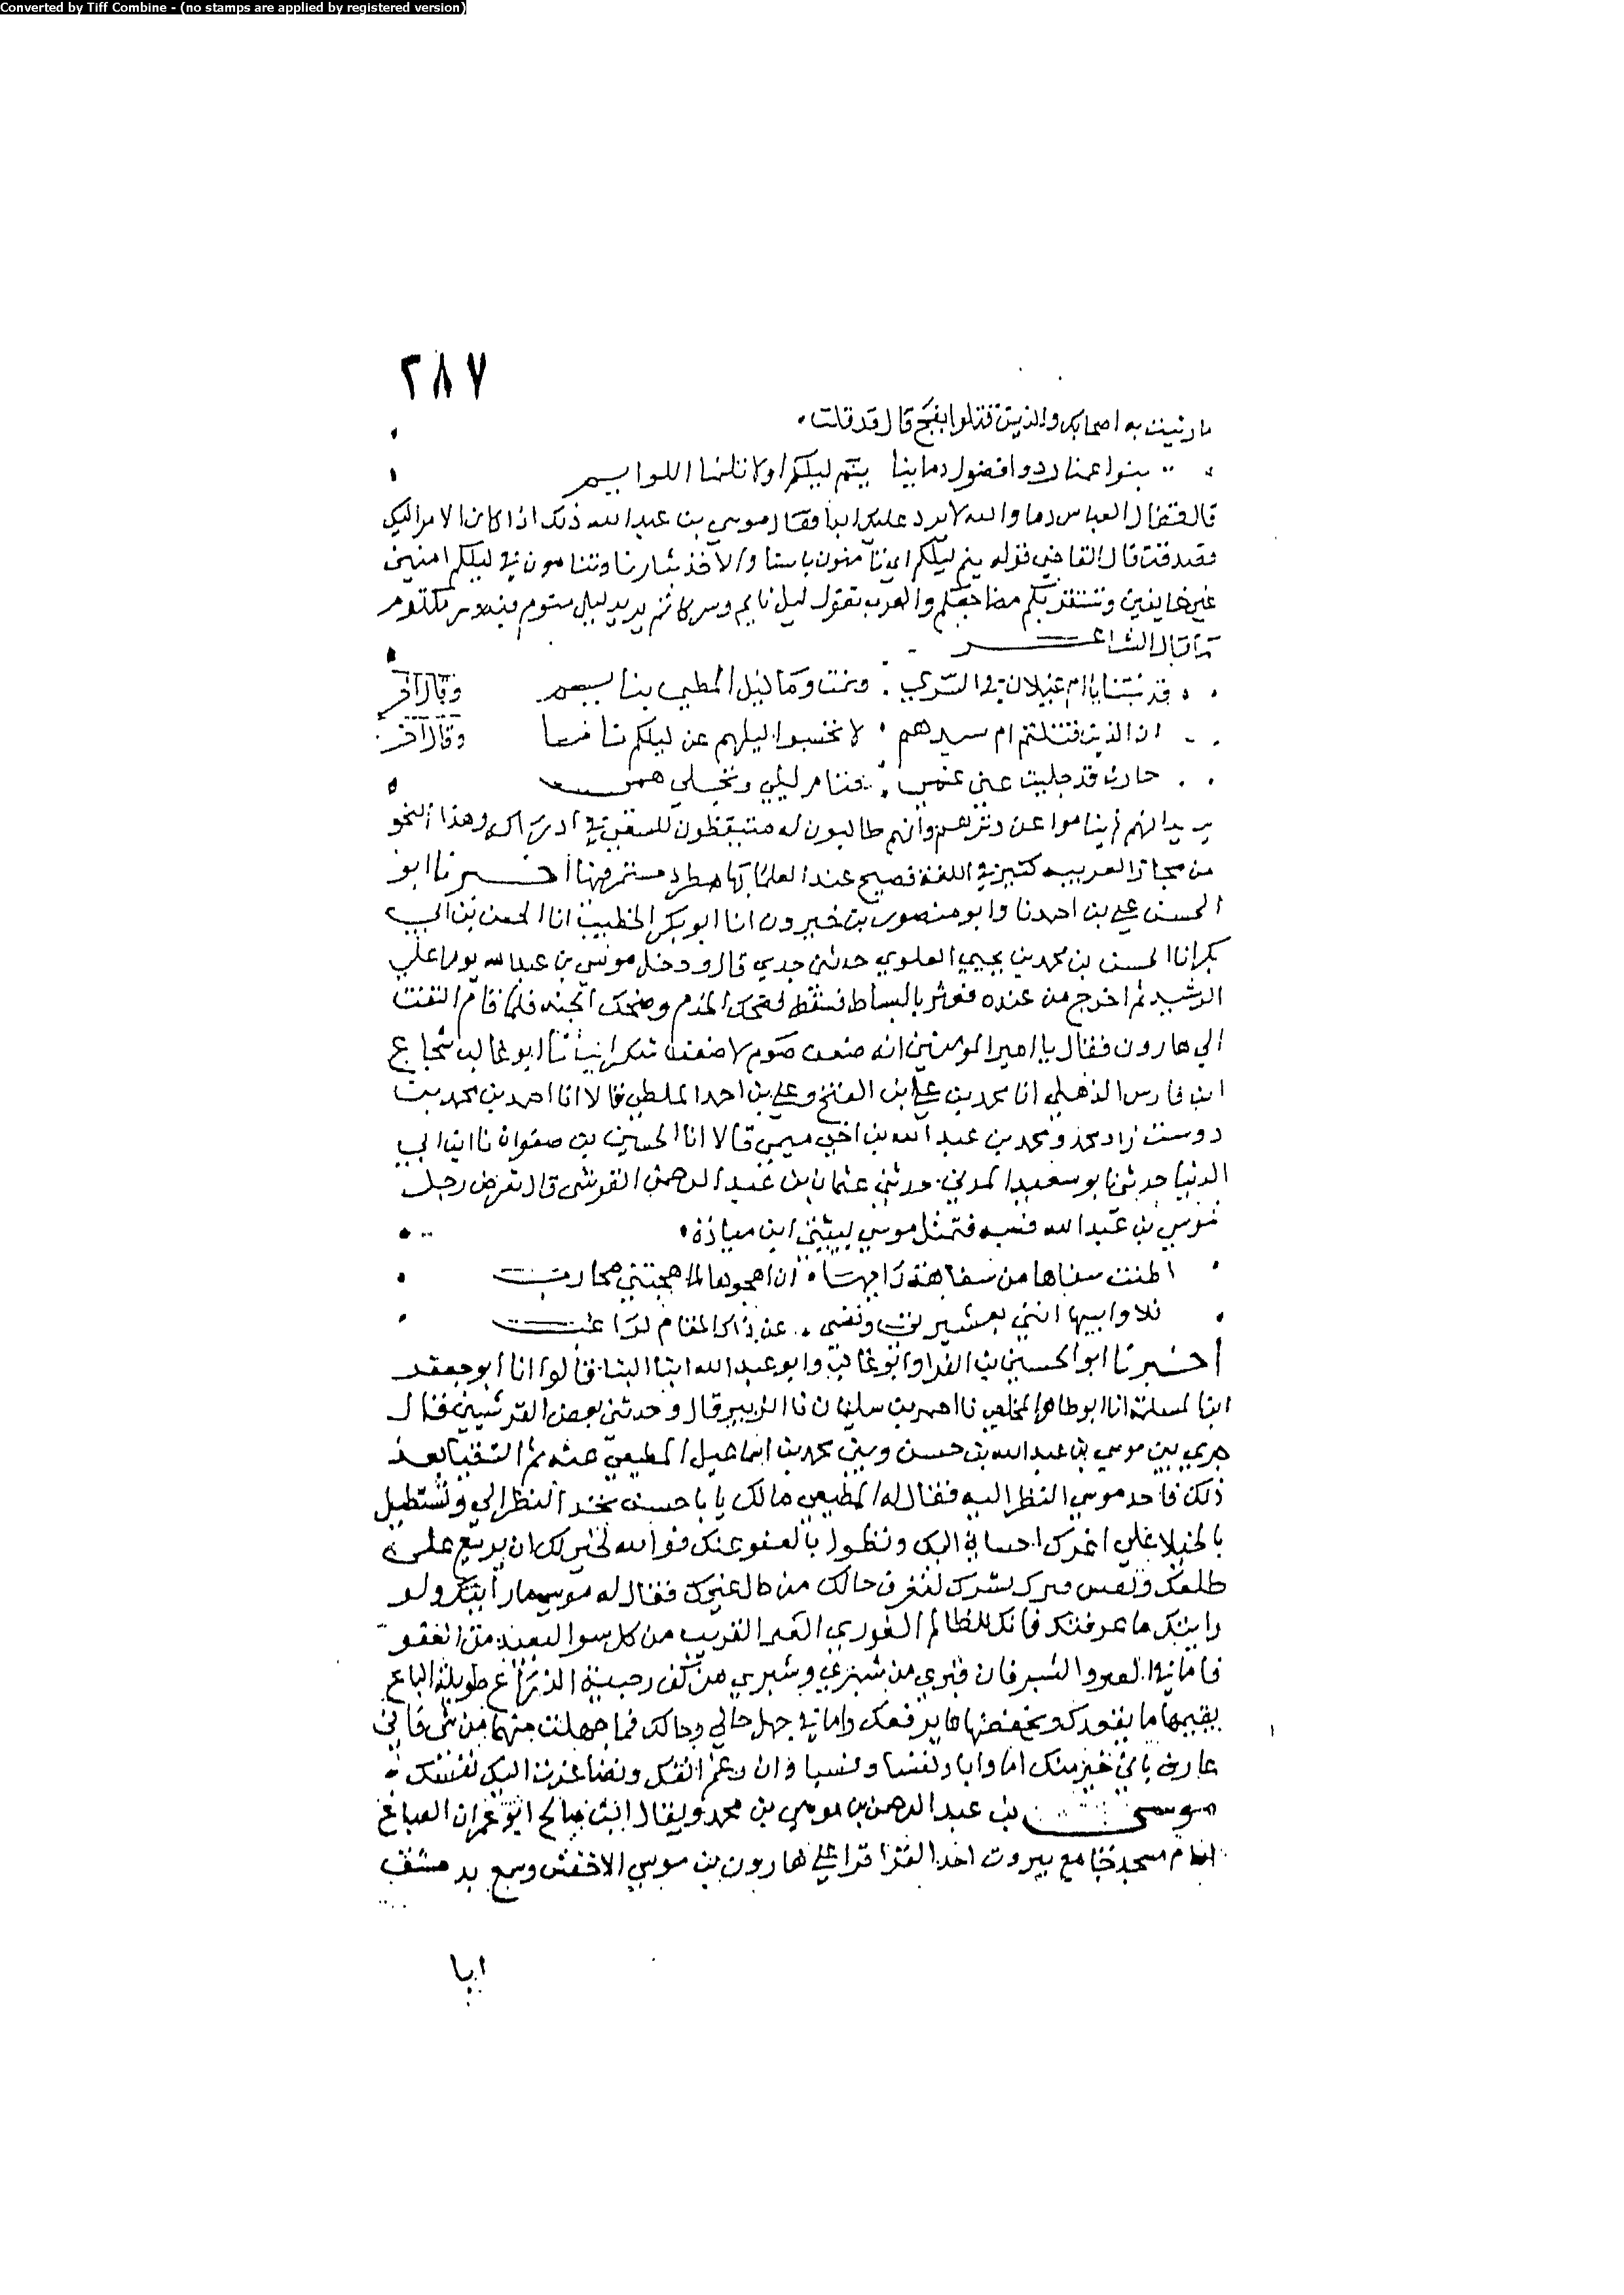 Converted by Tiff Combine - (no stamps are applied by registered version)
٢٨٧
ما رثيت به اصحابك والذين قتلوا بفخ قال قد قلت
بنوا عمنا ردوا فضول دماينا ينم ليلكم اولا تلمنا اللوايم
قال فقال العباس دما والله لا يرد عليك ابدا فقال موسى بن عبد الله ذلك اذا كان الامر اليك
فقد قال القاضي قوله ينم ليلكم اي تامنون باسنا والاخذ بثارنا وتنامون في ليلكم امنين
غير خايفين وتستقر بكم مضاجعكم والعرب تقول ليل نايم وسر كاتم يريد ليل منوم فيه وسر مكتوم
كما قال الشاعر
قد لمتنا يا ام غيلان في السري ونمت وما ليل المطي بنايم وقال آخر
ان الذين قتلتم امس سيدهم لا تحسبوا ليلهم عن ليلكم ناما وقال آخر
حارث قد جليت عني فنام ليلي وتجلى همي
يريد انهم لم يناموا عن وترهم وانهم طالبون له متيقظون للسعي في ادراكه وهذا النحو
من مجاز العربيه كثير في اللغة فصيح عند العلما بها مطرد مستمر فيها اخبرنا ابو
الحسن علي بن احمد نا وابو منصور بن خيرون انا ابو بكر الخطيب انا الحسن بن ابي
بكر انا الحسن بن محمد بن يحيى العلوي حدثني جدي قال ودخل موسى بن عبد الله يوما على
الرشيد ثم اخرج من عنده فعثر بالبساط فسقط فضحك الخدم وضحك الجند فلما قام التفت
الى هارون فقال يا امير المومنين انه ضعف صوم لا ضعف سكر انبانا ابو غالب شجاع
ابن فارس الذهلي انا محمد بن علي بن الفتح وعلي بن احمد الملطي قالا انا احمد بن محمد بن
دوست زاد محمد ومحمد بن عبد الله بن اخي ميمي قالا انا الحسين بن صفوان نا ابن ابي
الدنيا حدثني ابو سعيد المدني حدثني عثمان بن عبد الرحمن القرشي قال تعرض رجل
لموسى بن عبد الله فسبه فتمثل موسى ببيتي ابن ميادة
اظنت سفاها من سفاهة رايها ان اهجوها لما هجتني محارب
فلا وابيها انني بعشيرتي ونفسي عن ذاك المقام لراغب
اخبرنا ابو الحسين بن الفرا وابو غالب وابو عبد الله ابنا البنا قالوا انا ابو جعفر
ابن المسلمة انا ابو طاهر المخلص نا احمد بن سليمان نا الزبير قال وحدثني بعض القرشيين قال
جرى بين موسى بن عبد الله بن حسن وبين محمد بن اسماعيل ثم التقيا بعد
ذلك فاحد موسى النظر اليه فقال له مالك يا با حسن تحد النظر الي وتستطيل
بالخيلا علي اغرك احساني اليك بالعفو عنك فوالله لخير لك ان يربع على
ظلعك وتقيس شبرك بفترك لتعرف حالك من فقال له موسى ما رايتك ولو
رايتك ما عرفتك فانك للظالم القريب من كل سو البعيد من العفو
فاما الفتر والشبر فان فتري من شبري وشبري من كف رحيبة الذراع طويلة الباع
يقيمها ما يقعدك ويخفضها ما يرفعك واما في جهل حالي وحالك فما جهلت منهما من شي فاني
عارف باني خير منك اما وابا ونفسا ونسبا وان رغم انفك وتصاغرت اليك نفسك
موسى بن عبد الرحمن بن موسى بن محمد ويقال ابن صالح ابو عمران الصباغ
امام مسجد جامع بيروت احد القرا قرا على هارون بن موسى الاخفش وسمع بدمشق
ابا